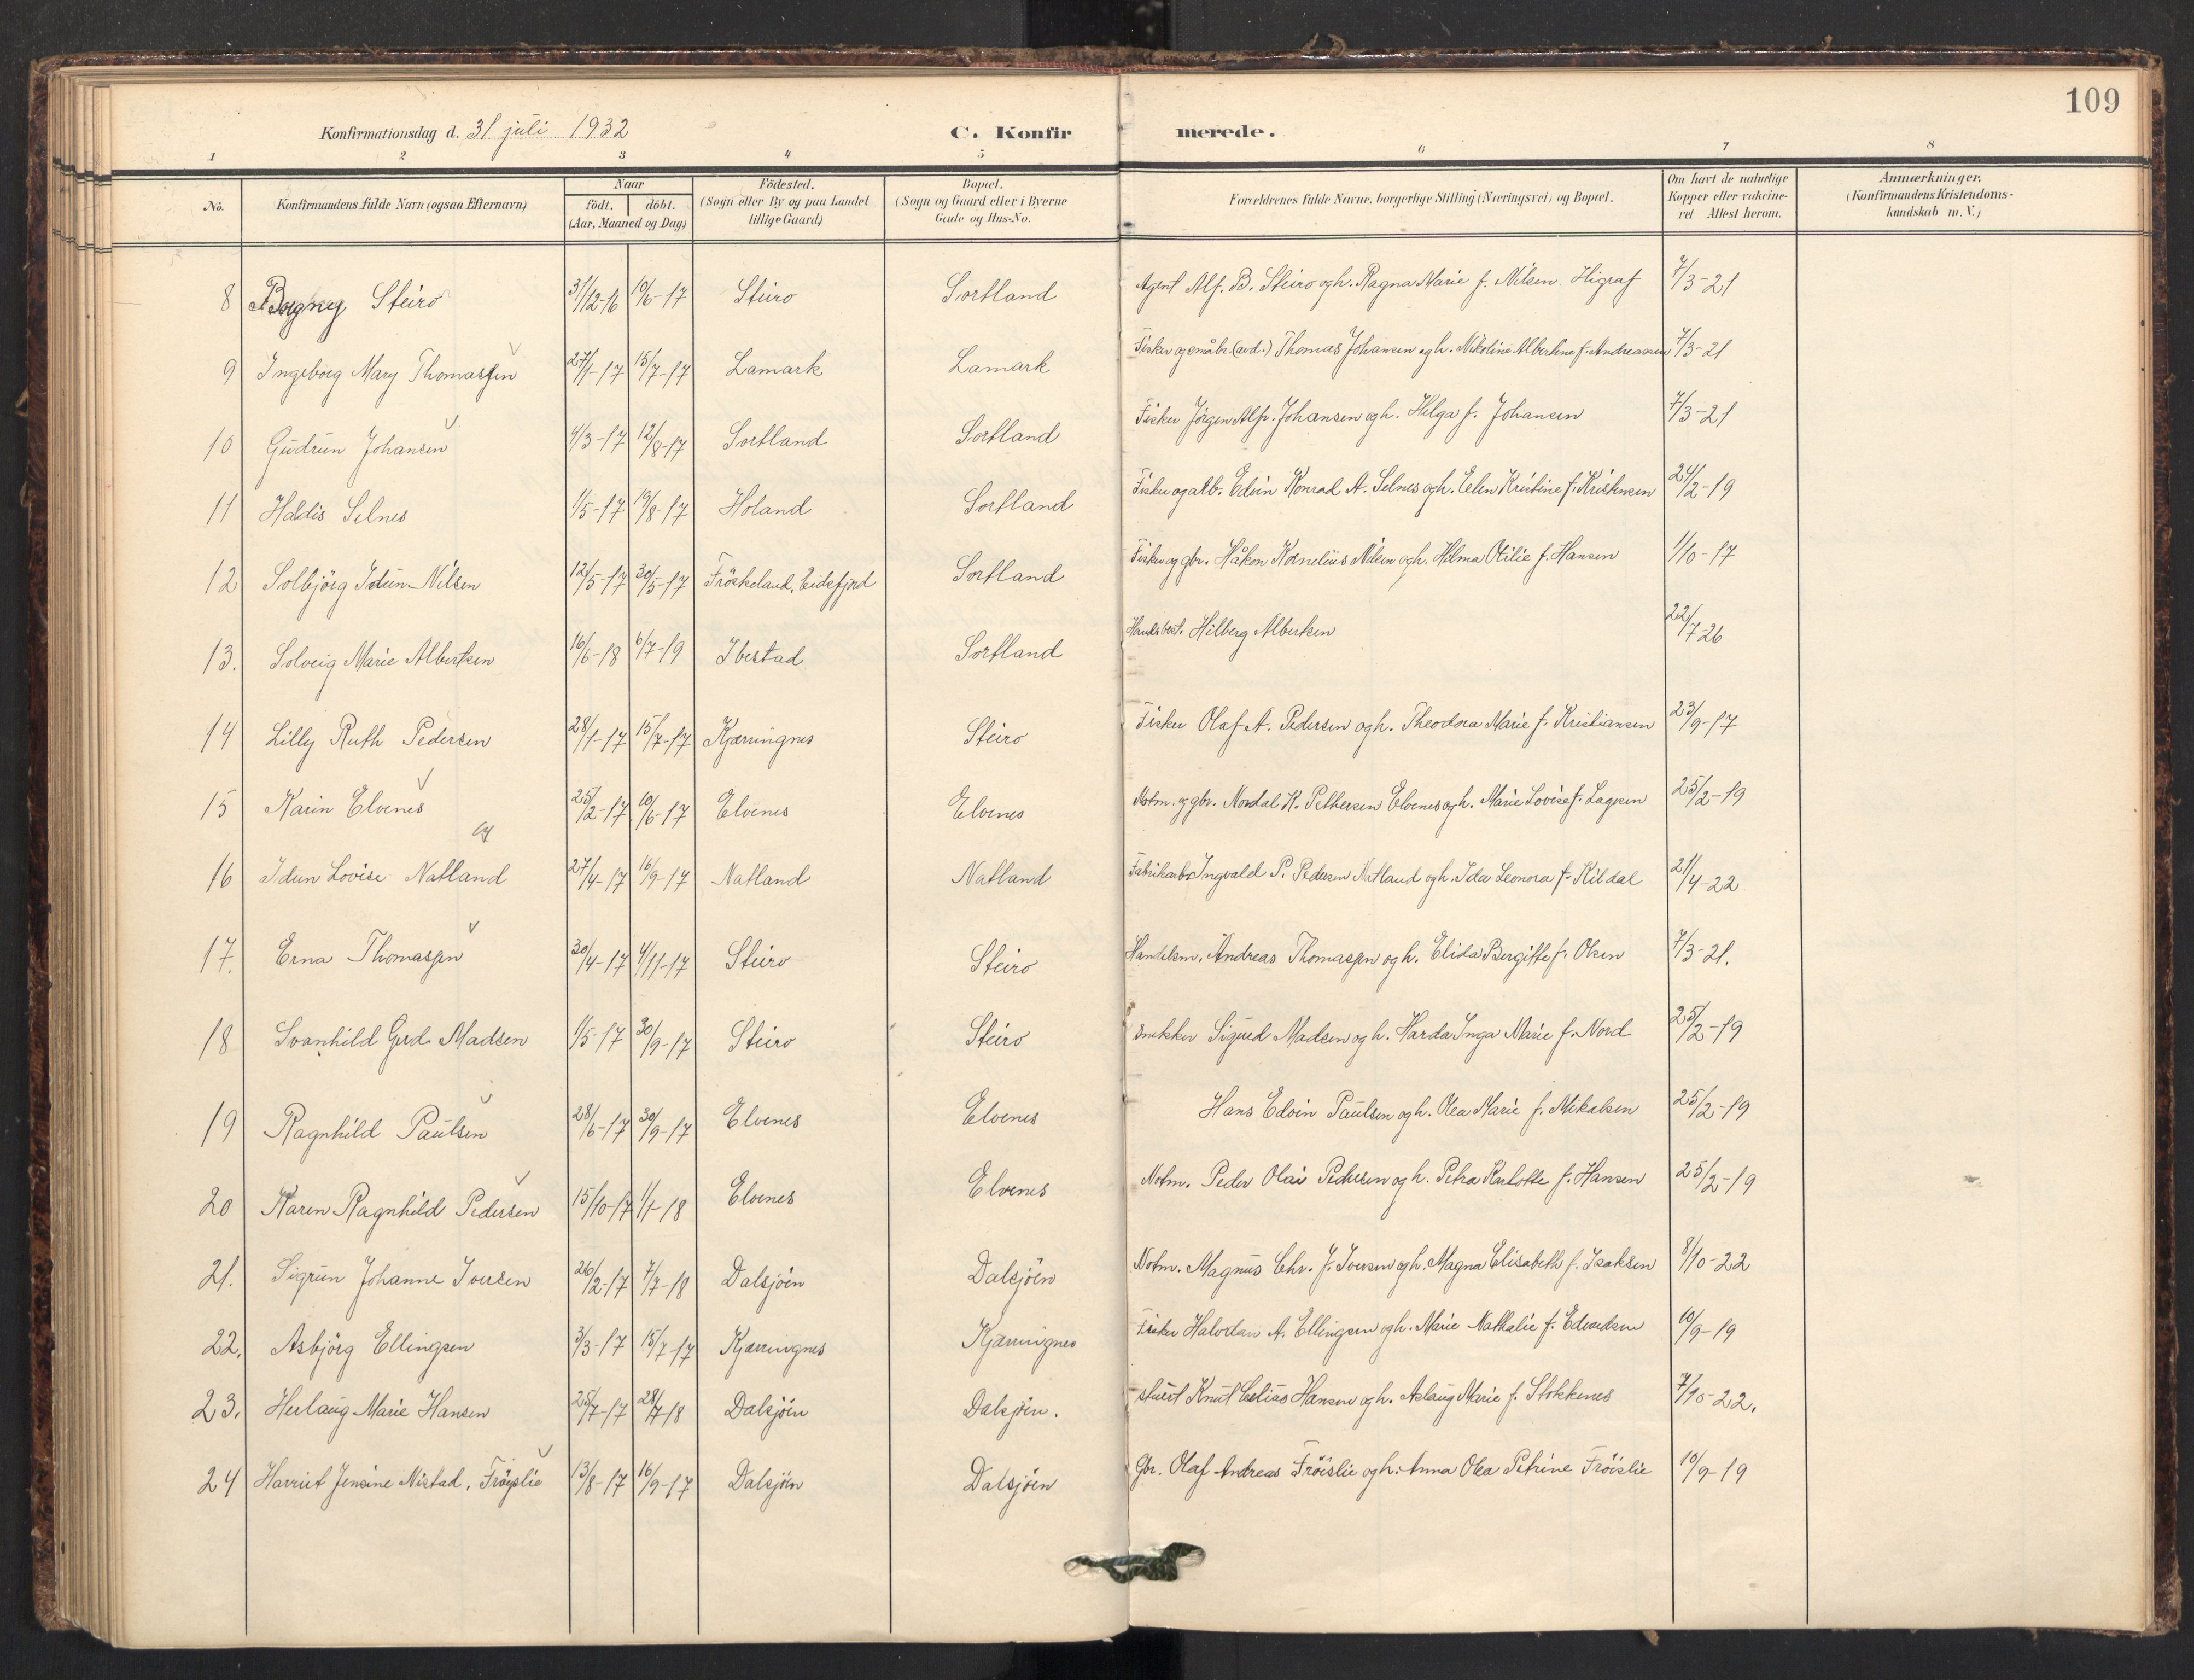 109
Konfirmationsdag d. 31 juli 1932 C. Konfir merede.
1 2 3 4 5 6 7 8
No. Konfirmandens fulde Navn (ogsaa Efternavn) Naar födt. döbt. (Aar, Maaned og Dag) Födested. (Sogn eller By og paa Landet tillige Gaard) Bopæl. (Sogn og Gaard eller i Byerne Gade og Hus-No. Forældrenes fulde Navne, borgerlige Stilling (Næringsvei) og Bopæl. Om havt de naturlige Kopper eller vakcineret Attest herom. Anmærkninger. (Konfirmandens Kristendomskundskab m. V.)
8 Borgny Steiro 31/12-16 10/6-17 Steiro Sortland Agent Alf. B. Steiro og h. Ragna Marie f. Nilsen Higraf 7/3-21
9 Ingeborg Mary Thomassen 27/1-17 15/7-17 Lamark Lamark Fisker og småbr. (avd.) Thomas Johansen og h. Nikoline Albertine f. Andreassen 7/3-21
10 Gudrun Johansen 4/3-17 12/8-17 Sortland Sortland Fisker Jörgen Alfr. Johansen og h. Helga f. Johansen 7/3-21
11 Haldis Selnes 1/5-17 19/8-17 Holand Sortland Fisker og arb. Edvin Konrad A. Selnes og h. Elen Kristine f. Kristensen 24/2-19
12 Solbjörg Idun Nilsen 12/5-17 30/5-17 Fröskeland, Eidsfjord Sortland Fisker og gbr. Håkon Kornelius Nilsen og h. Hilma Otilie f. Hansen 1/10-17
13. Solveig Marie Albertsen 16/6-18 6/7-19 Ibestad Sortland Handsbest. Hilberg Albertsen 22/7-26
14 Lilly Ruth Pedersen 28/1-17 15/7-17 Kjærringnes Steiro Fisker Olaf A. Pedersen og h. Theodora Marie f. Kristiansen 23/9-17
15 Karin Elvenes 25/2-17 10/6-17 Elvenes Elvenes Notm. og gbr. Nordal K. Pettersen Elvenes og h. Marie Lovise f. Lagesen 25/2-19
16 Idun Lovise Natland 27/4-17 16/9-17 Natland Natland Fabrikarb. Ingvald P. Pedersen Natland og h. Ida Leonora f. Kildal 21/4-22
17. Erna Thomassen 30/4-17 4/11-17 Steiro Steiro Handelsm. Andreas Thomassen og h. Elida Bergitte f. Olsen 7/3-21.
18 Svanhild Gerd Madsen 1/5-17 30/9-17 Steiro Steiro Snekker Sigurd Madsen og h. Harda Inga Marie f. Nord 25/2-19
19 Ragnhild Paulsen 28/6-17 30/9-17 Elvenes Elvenes Hans Edvin Paulsen og h. Olea Marie f. Mikalsen 25/2-19
20 Karen Ragnhild Pedersen 15/10-17 1/1-18 Elvenes Elvenes Notm. Peder Olai Pedersen og h. Petra Karlotte f. Hansen 25/2-19
21. Sigrun Johanne Iversen 26/2-17 7/7-18 Dalsjöen Dalsjöen Notm. Magnus Chr. J. Iversen og h. Magna Elisabeth f. Isaksen 8/10-22
22. Asbjörg Ellingsen 3/3-17 15/7-17 Kjærringnes Kjærringnes Fisker Halvdan A. Ellingsen og h. Marie Nathalie f. Edvardsen 10/9-19
23. Herlaug Marie Hansen 25/7-17 28/7-18 Dalsjöen Dalsjöen. Stuert Knut Celius Hansen og h. Aslaug Marie f. Stokkenes 7/10-22.
24 Harriet Jensine Nistad, Fröislie 13/8-17 16/9-17 Dalsjöen Dalsjöen Gbr. Olaf Andreas Fröislie og h. Anna Olea Petrine Fröislie 10/9-19